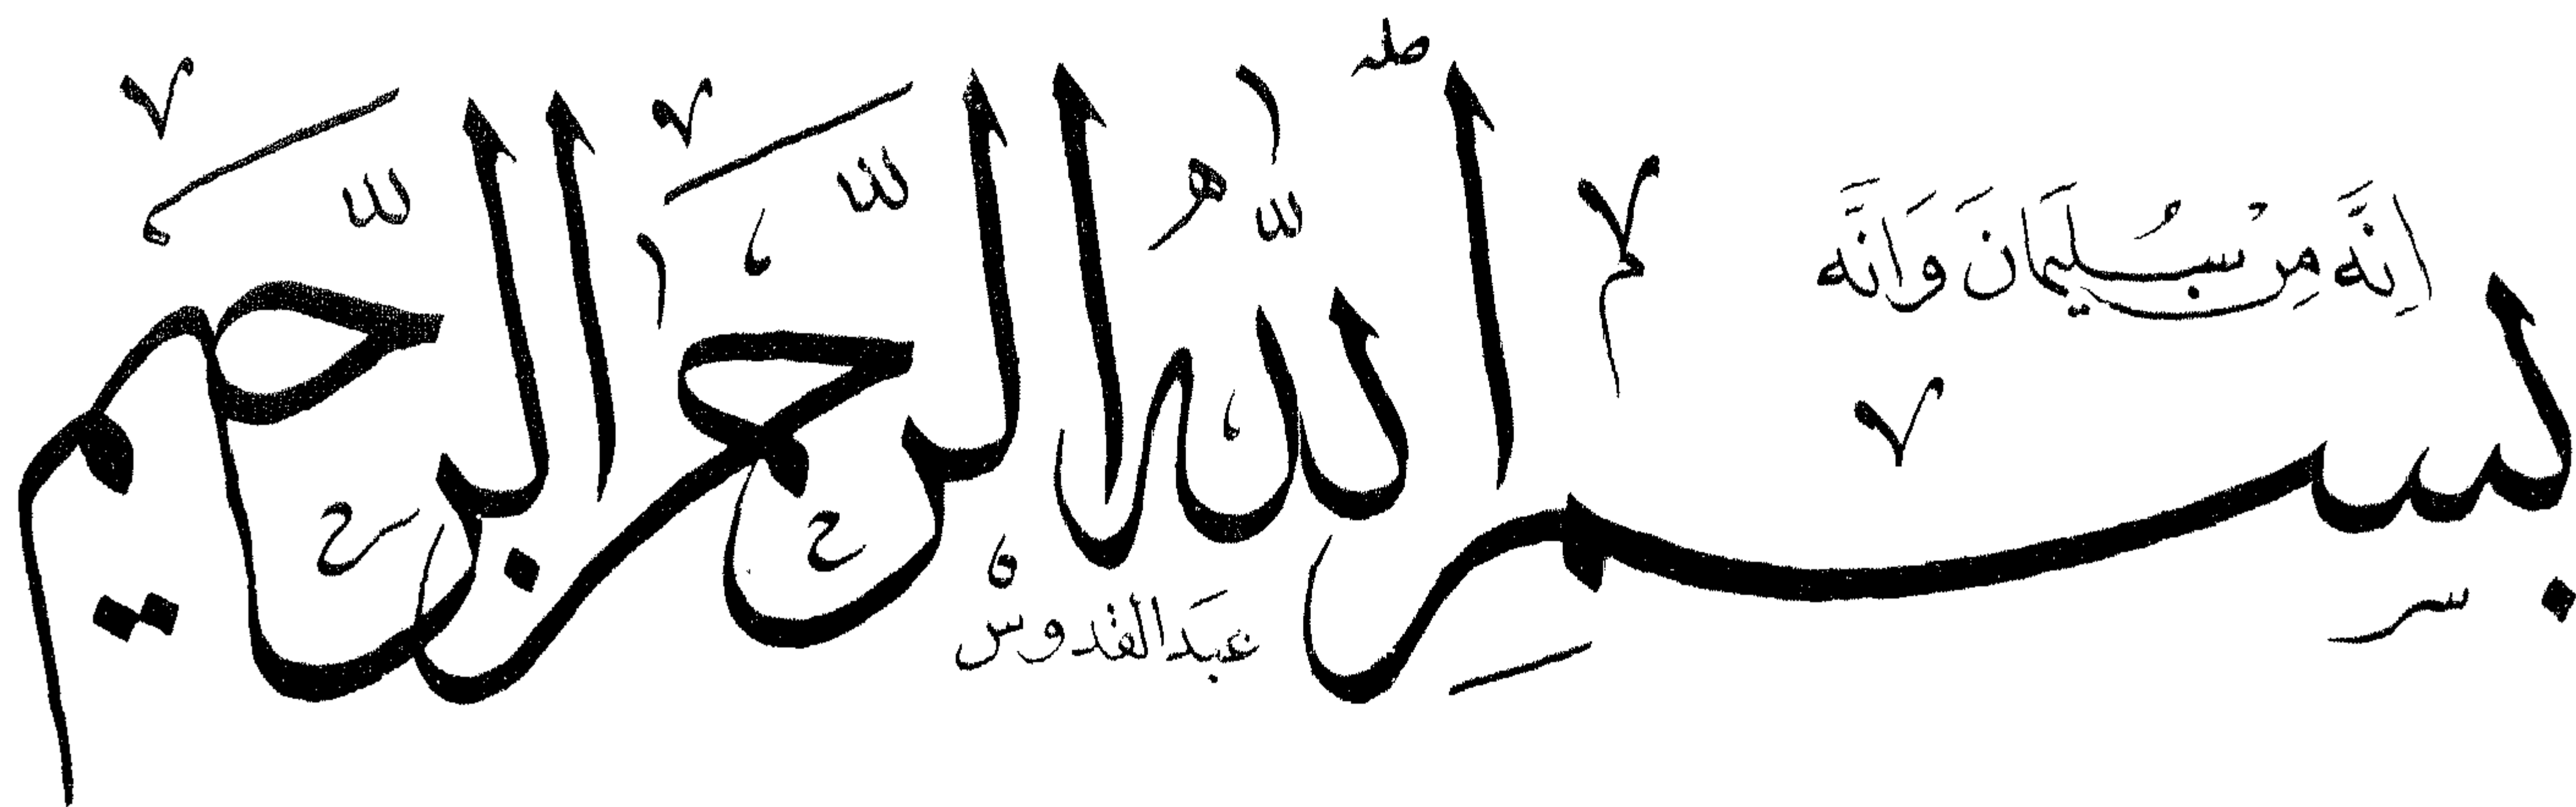 اِنَّهٗ مِنْ سُلَيْمَانَ وَاِنَّهٗ
بسمِ اللهُ الرحمن الرحيم
عبدَالقدوس